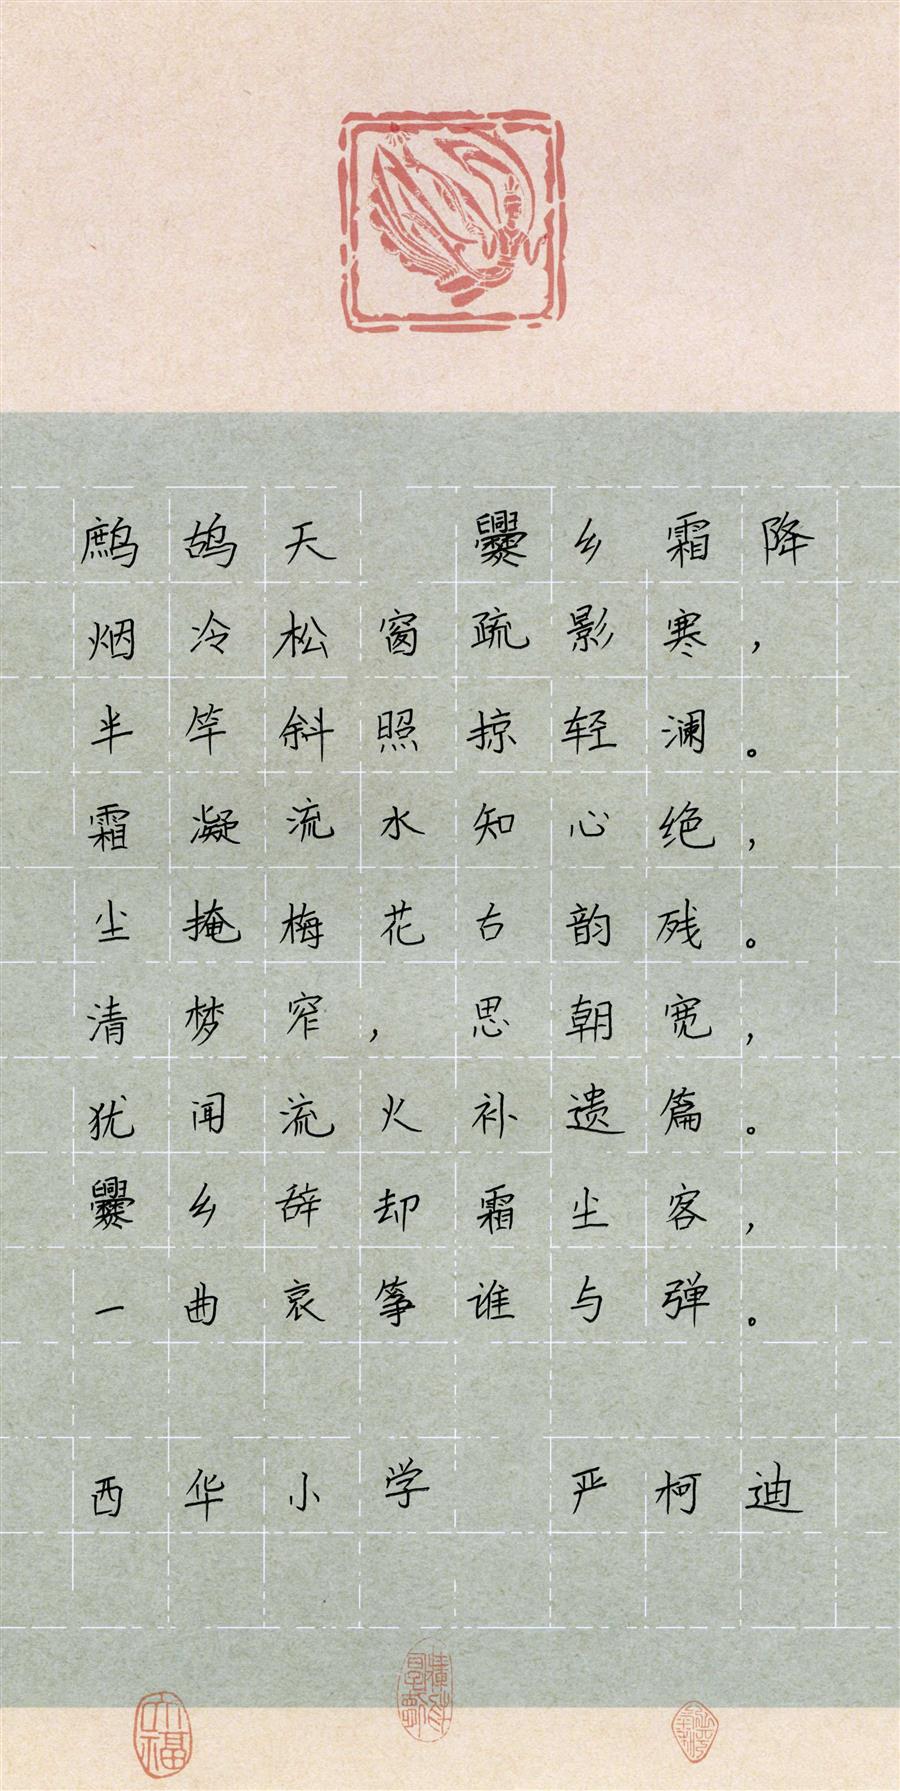 鹧鸪天 爨乡霜降
烟冷松窗疏影寒，
半竿斜照掠轻澜。
霜凝流水知心绝，
尘掩梅花古韵残。
清梦窄，思朝宽，
犹闻流火补遗篇。
爨乡辞却霜尘客，
一曲哀筝谁与弹。
西华小学 严柯迪